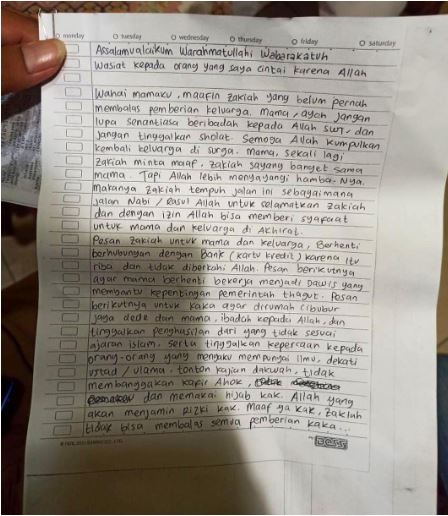 monday tuesday wednesday thursday friday saturday
Assalamualaikum Warahmatullahi Wabarakatuh
Wasiat kepada orang yang saya cintai karena Allah
Wahai mamaku, maafin zakiah yang belum pernah
membalas pemberian keluarga. Mama, ayah jangan
lupa senantiasa beribadah kepada Allah swt, dan
jangan tinggalkan sholat. Semoga Allah kumpulkan
kembali keluarga di surga. Mama, sekali lagi
zakiah minta maaf, zakiah sayang banget sama
mama. Tapi Allah lebih menyayangi hamba-Nya.
Makanya zakiah tempuh jalan ini sebagaimana
jalan Nabi / Rasul Allah untuk selamatkan zakiah
dan dengan izin Allah bisa memberi syapaat
untuk mama dan keluarga di Akhirat.
Pesan zakiah untuk mama dan keluarga, Berhenti
berhubungan dengan Bank (kartu kredit) karena itu
riba dan tidak diberkahi Allah. Pesan berikutnya
agar mama berhenti bekerja menjadi Dawis yang
membantu kepentingan pemerintah thagut. Pesan
berikutnya untuk kaka agar dirumah cibubur
jaga dede dan mama, ibadah kepada Allah, dan
tinggalkan penghasilan dari yang tidak sesuai
ajaran islam. Serta tinggalkan kepercaan kepada
orang-orang yang mengaku mempunyai ilmu, dekati
ustad / ulama, tonton kajian dakwah, tidak
membanggakan kafir Ahok,
dan memakai hijab kak. Allah yang
akan menjamin rizki kak. Maaf ya kak, zakiah
tidak bisa membalas semua pemberian kaka...